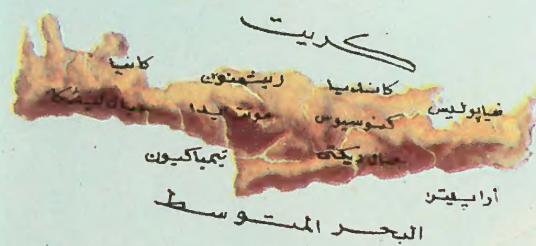 كريت
كانيا
ريثمنون
كانديا
نيابوليس
جبال ليفكا
مونت ايدا
كنوسيوس
تيمباكيون
جبال ديكتى
أرابيترا
البحر المتوسط